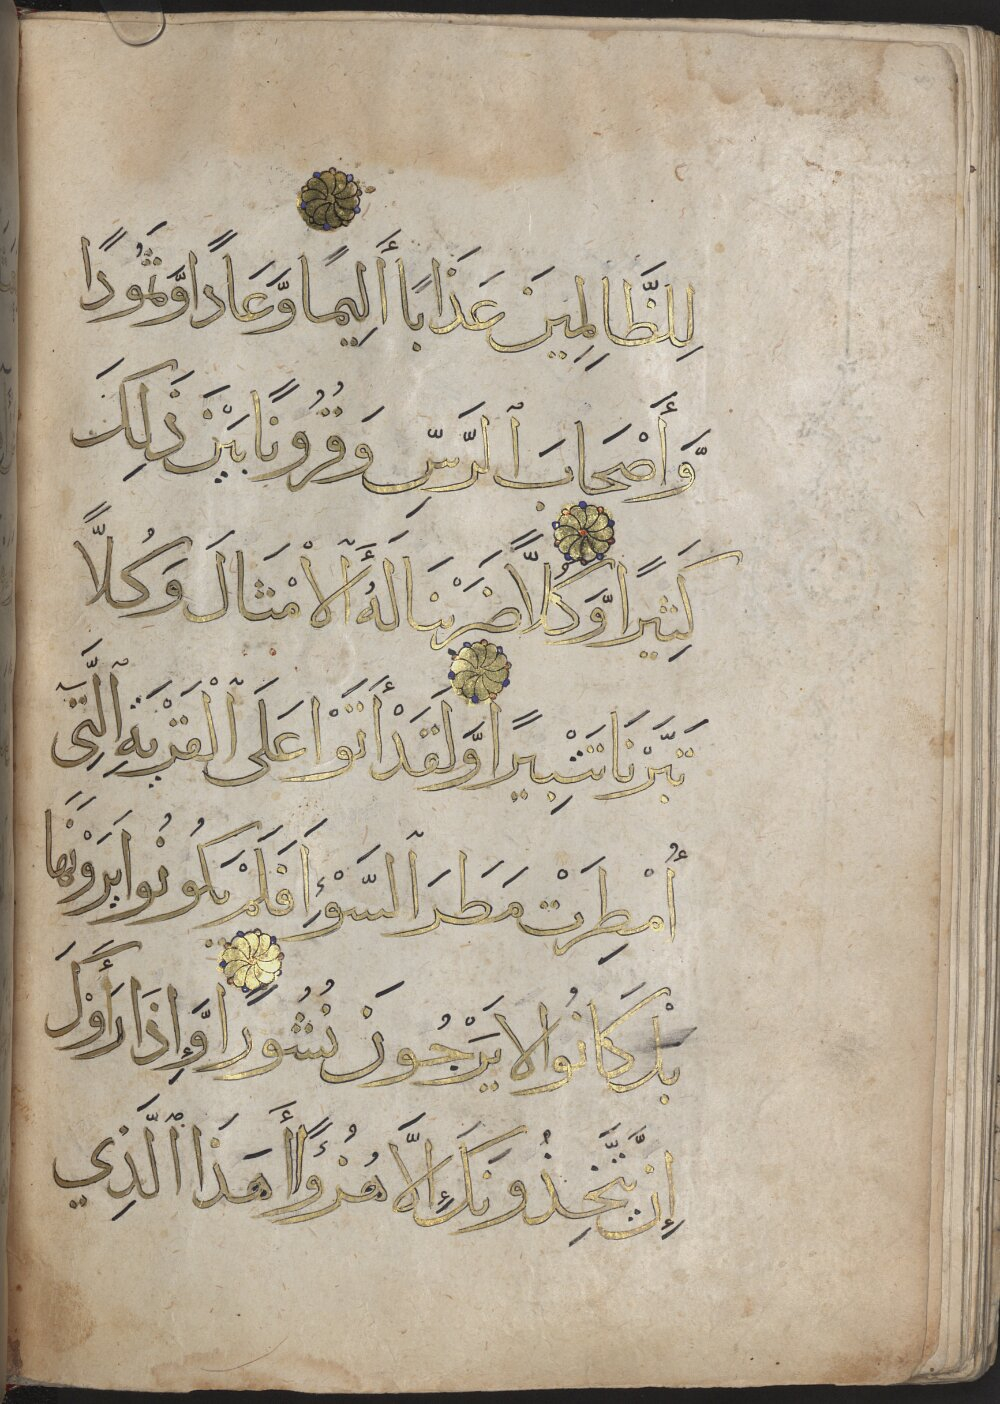 لِلظَّالِمِينَ عَذَابًا أَلِيمًا وَّعَادًا وَّثَمُودًا
وَّأَصْحَابَ ٱلرَّسِّ وَقُرُونًا بَيْنَ ذَلِكَ
كَثِيرًا وَّكُلًّا ضَرَبْنَا لَهُ ٱلْأَمْثَالَ وَكُلًّا
تَبَّرْنَا تَتْبِيرًا وَّلَقَدْ أَتَوْا عَلَى ٱلْقَرْيَةِ ٱلَّتِي
أُمْطِرَتْ مَطَرَ ٱلسَّوْءِ أَفَلَمْ يَكُونُوا يَرَوْنَهَا
بَلْ كَانُوا لَا يَرْجُونَ نُشُورًا وَّإِذَا رَأَوْكَ
إِنْ يَّتَّخِذُونَكَ إِلَّا هُزُؤًا أَهَذَا ٱلَّذِي